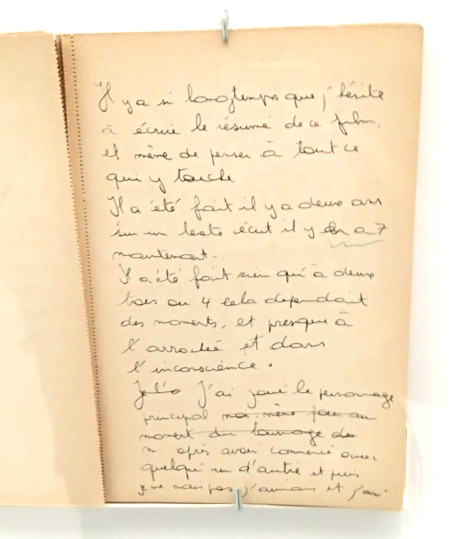 Il y a si longtemps que j'hésite
à écrire le résumé de ce film,
et même de penser à tout ce
qui y touche
Il a été fait il y a deux ans
sur un texte écrit il y en a 7
maintenant.
Il a été fait rien qu'à deux
bois ou 4 cela dépendait
des moments, et presque à
l'arrachée et dans
l'inconscience.
Je l'a J'ai joué le personnage
principal moi-même pour au
moment du tournage de
après avoir commencé avec
quelqu'un d'autre et puis
je ne sais pas j'aimais et j'ai